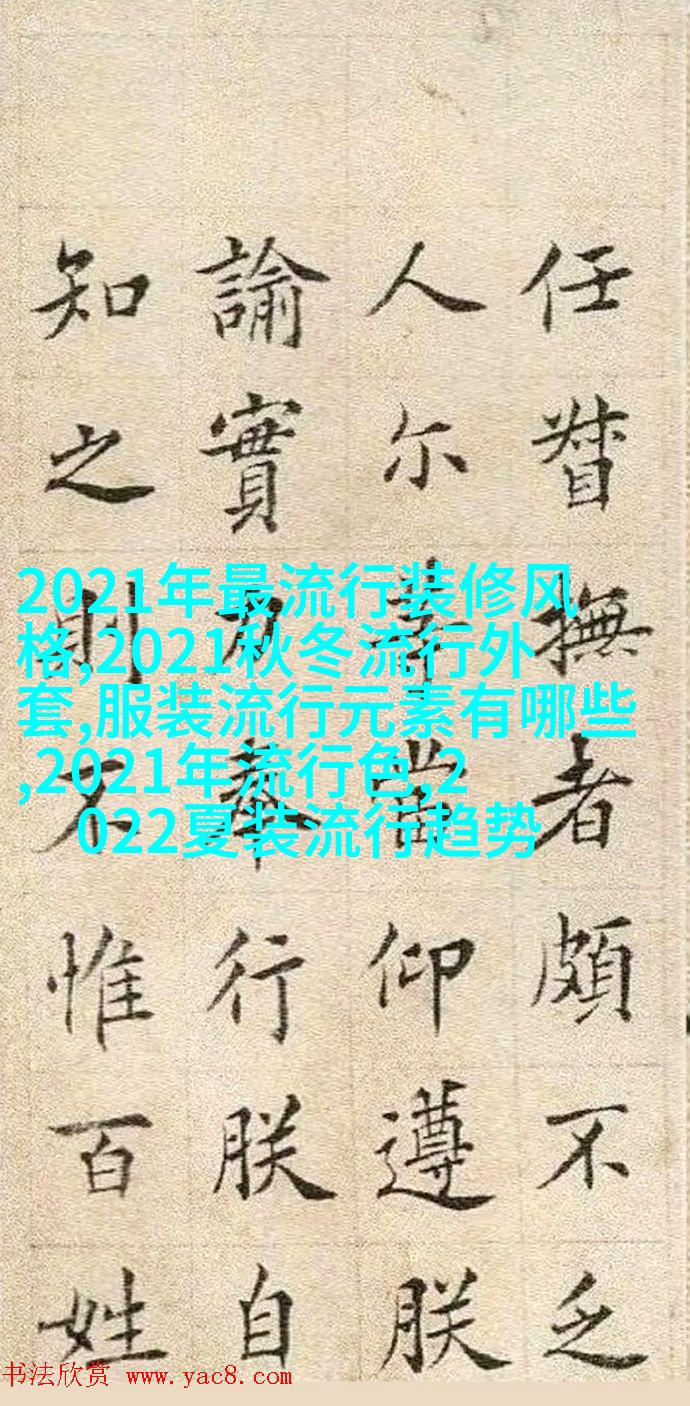 任督撫者頗不乏
人尔等當仰遵朕
諭實力奉行朕自
知之則不惟百姓
2021年最流行装修风
格,2021秋冬流行外
套,服装流行元素有哪些
,2021年流行色,2
022夏装流行趋势
书法欣赏 www.yac8.com